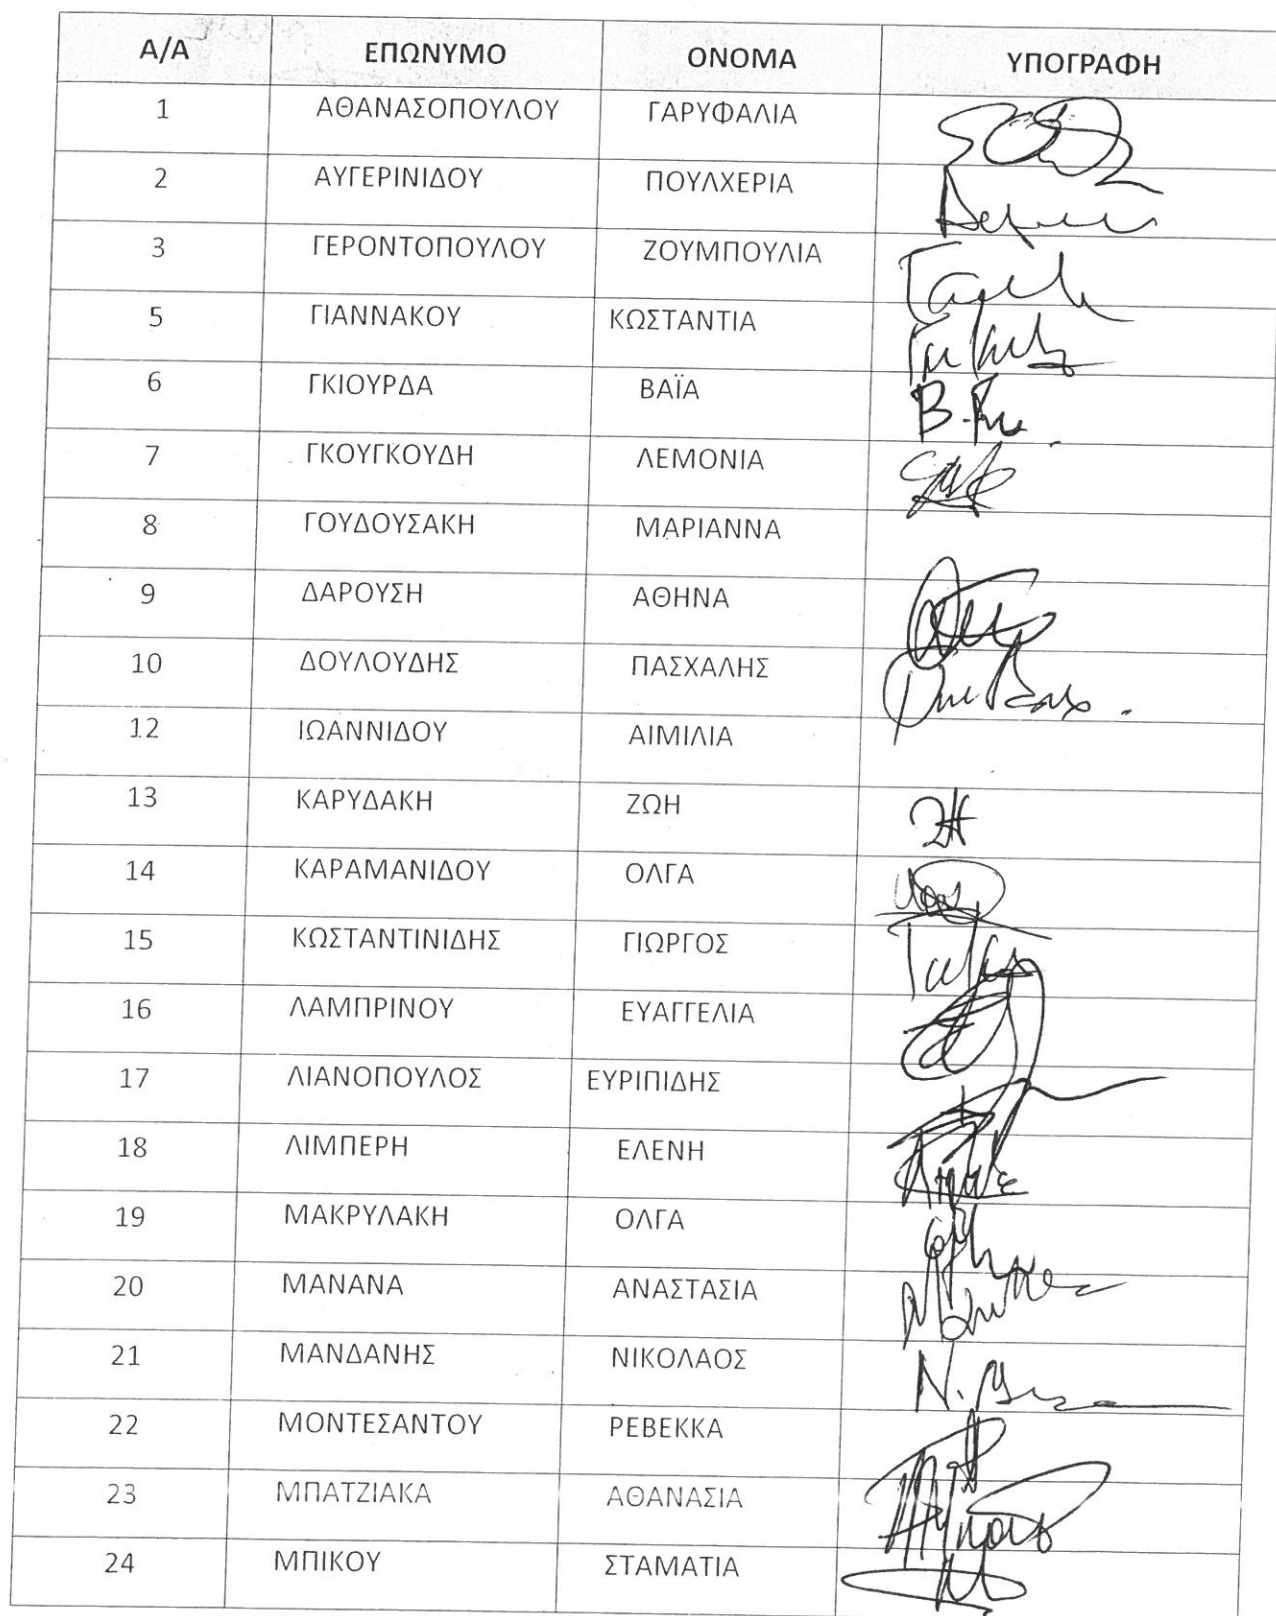 Α/Α ΕΠΩΝΥΜΟ ΟΝΟΜΑ ΥΠΟΓΡΑΦΗ
1 ΑΘΑΝΑΣΟΠΟΥΛΟΥ ΓΑΡΥΦΑΛΙΑ
2 ΑΥΓΕΡΙΝΙΔΟΥ ΠΟΥΛΧΕΡΙΑ
3 ΓΕΡΟΝΤΟΠΟΥΛΟΥ ΖΟΥΜΠΟΥΛΙΑ
5 ΓΙΑΝΝΑΚΟΥ ΚΩΣΤΑΝΤΙΑ
6 ΓΚΙΟΥΡΔΑ ΒΑΪΑ
7 ΓΚΟΥΓΚΟΥΔΗ ΛΕΜΟΝΙΑ
8 ΓΟΥΔΟΥΣΑΚΗ ΜΑΡΙΑΝΝΑ
9 ΔΑΡΟΥΣΗ ΑΘΗΝΑ
10 ΔΟΥΛΟΥΔΗΣ ΠΑΣΧΑΛΗΣ
12 ΙΩΑΝΝΙΔΟΥ ΑΙΜΙΛΙΑ
13 ΚΑΡΥΔΑΚΗ ΖΩΗ
14 ΚΑΡΑΜΑΝΙΔΟΥ ΟΛΓΑ
15 ΚΩΣΤΑΝΤΙΝΙΔΗΣ ΓΙΩΡΓΟΣ
16 ΛΑΜΠΡΙΝΟΥ ΕΥΑΓΓΕΛΙΑ
17 ΛΙΑΝΟΠΟΥΛΟΣ ΕΥΡΙΠΙΔΗΣ
18 ΛΙΜΠΕΡΗ ΕΛΕΝΗ
19 ΜΑΚΡΥΛΑΚΗ ΟΛΓΑ
20 ΜΑΝΑΝΑ ΑΝΑΣΤΑΣΙΑ
21 ΜΑΝΔΑΝΗΣ ΝΙΚΟΛΑΟΣ
22 ΜΟΝΤΕΣΑΝΤΟΥ ΡΕΒΕΚΚΑ
23 ΜΠΑΤΖΙΑΚΑ ΑΘΑΝΑΣΙΑ
24 ΜΠΙΚΟΥ ΣΤΑΜΑΤΙΑ